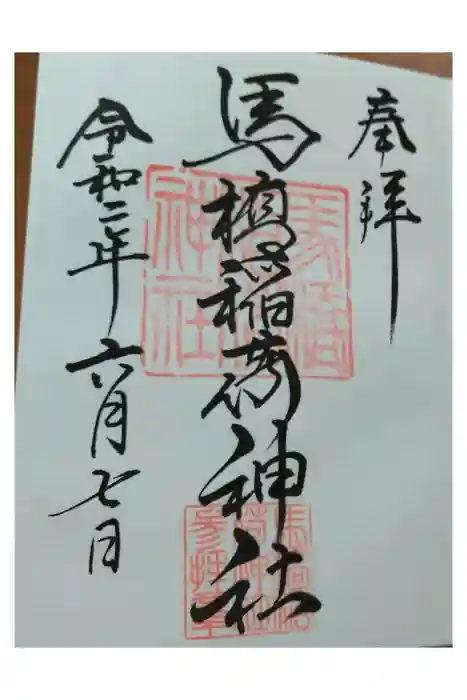 奉拝
馬橋稲荷神社
令和二年六月七日
馬橋
稲荷
神社
馬橋稲
荷神社
参拝章